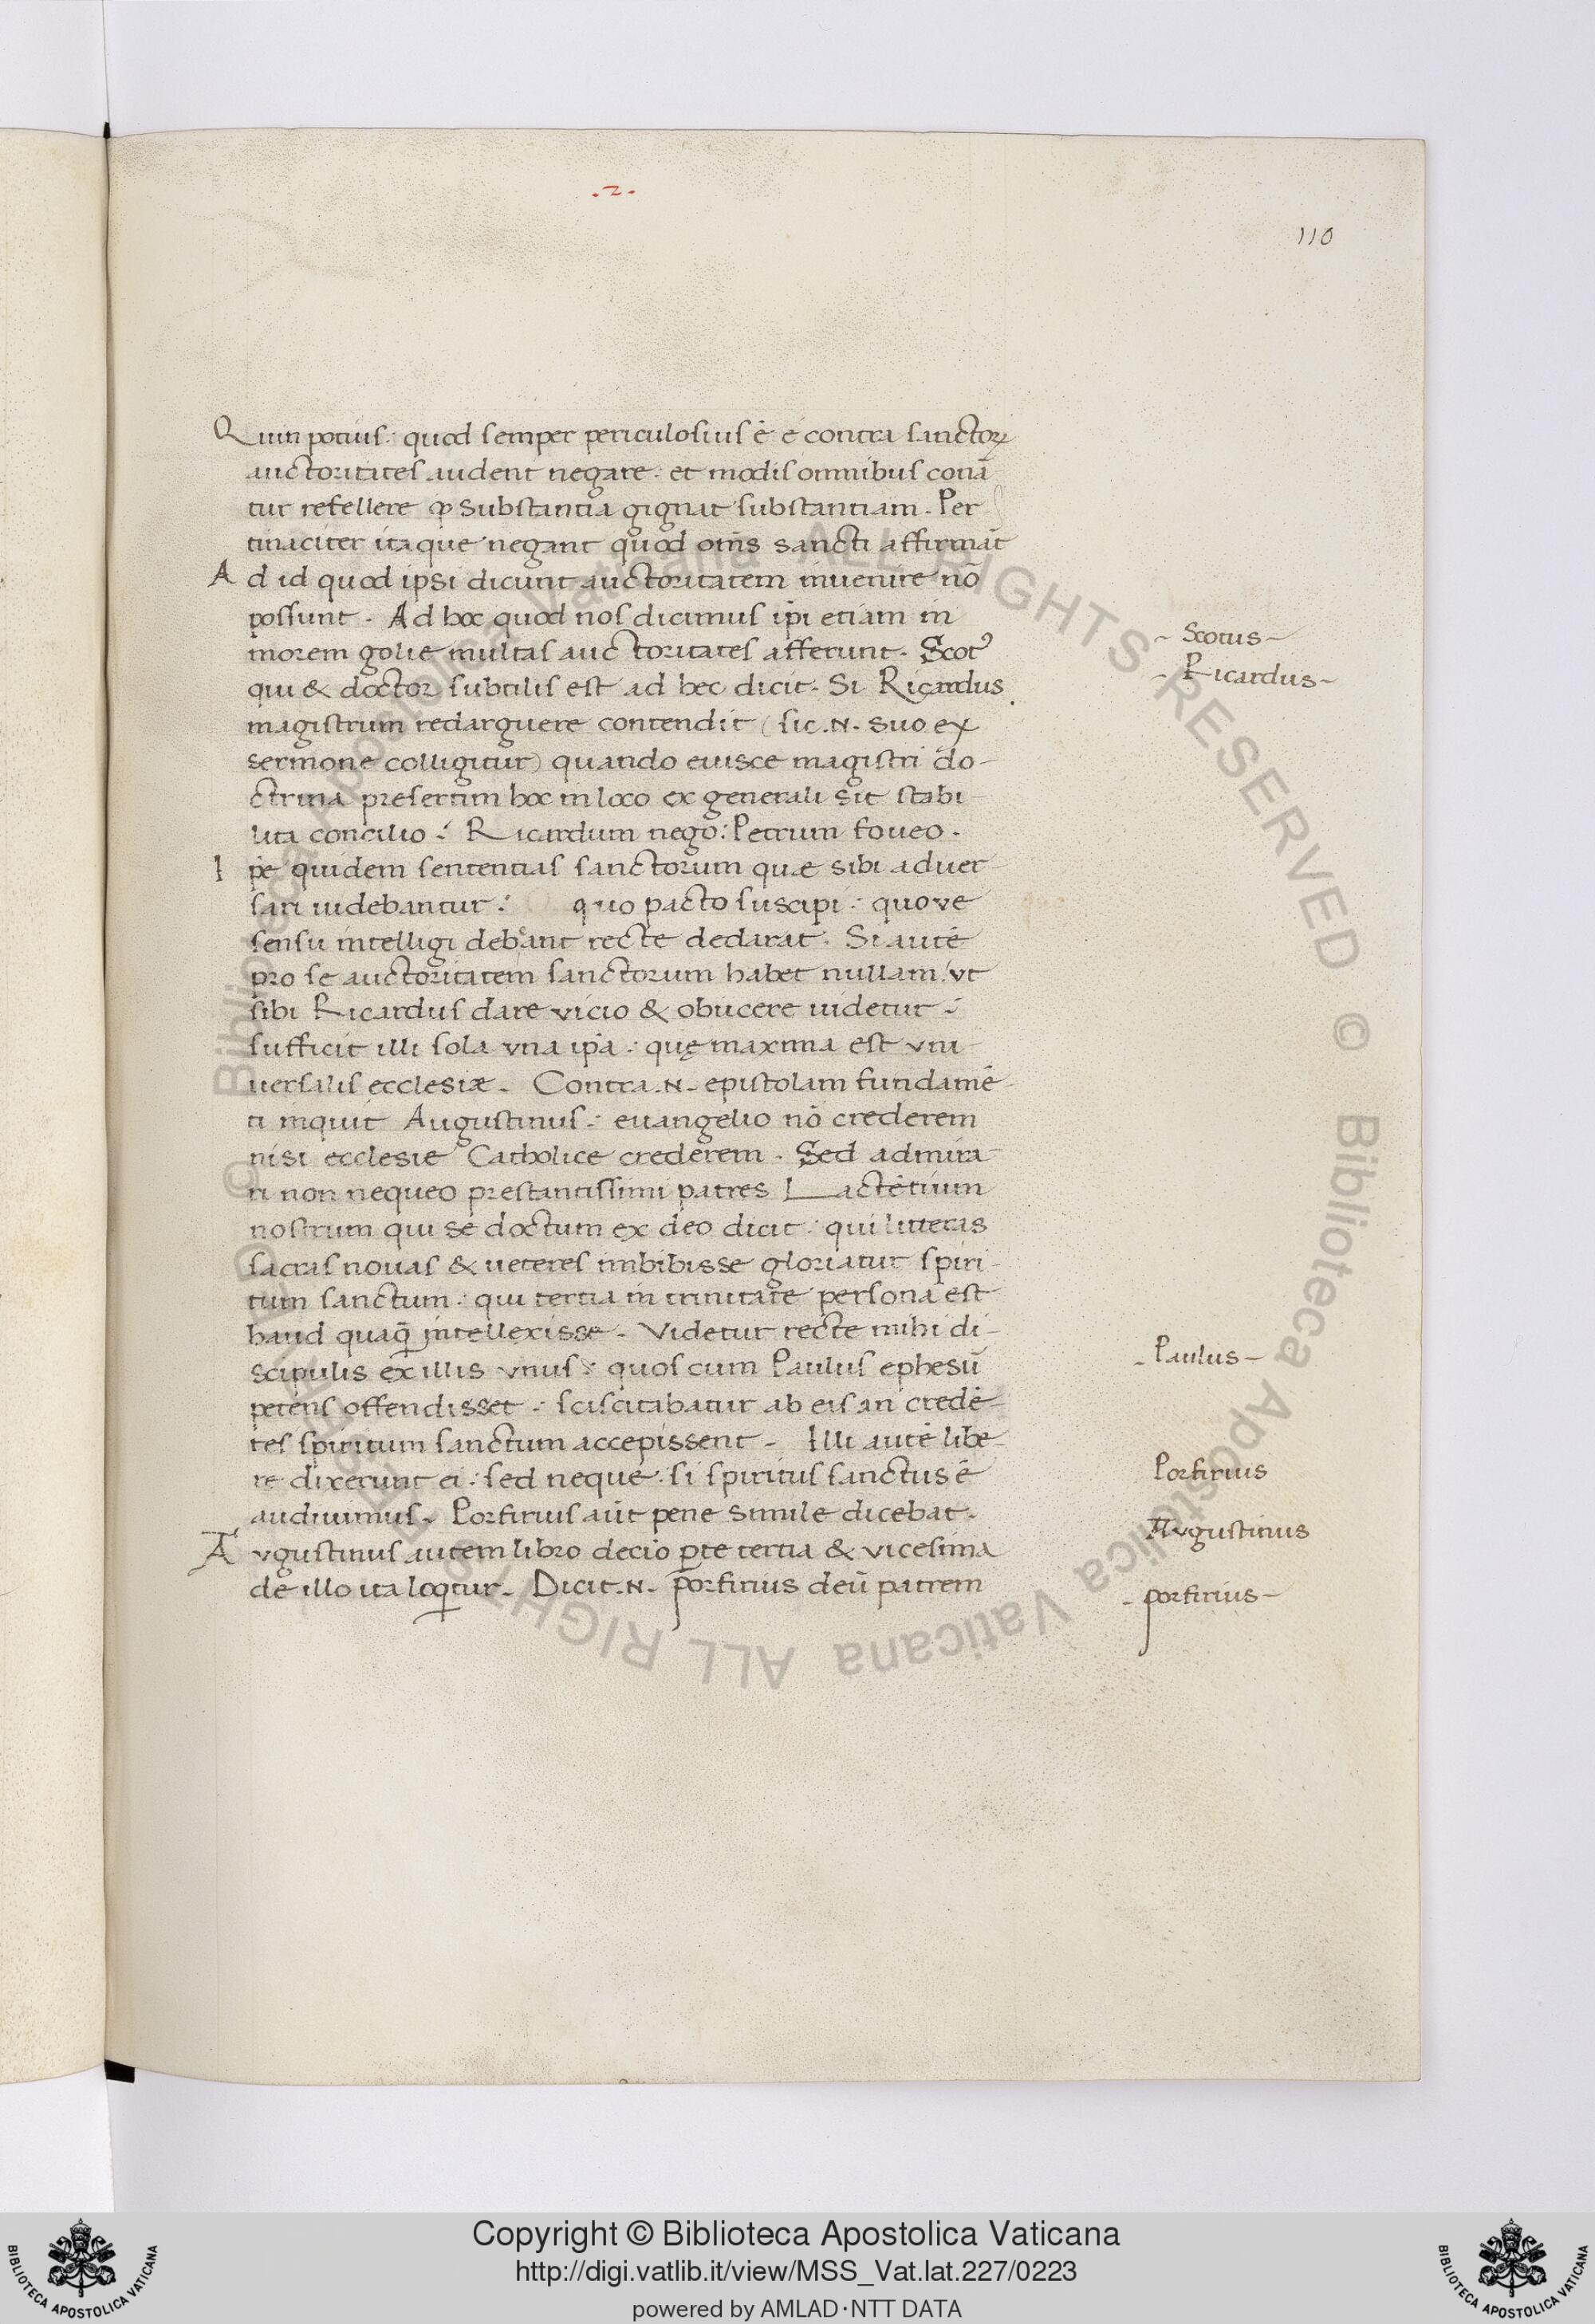 .2.
110
Quin potius: quod semper periculosius ē é contra sanctoꝝ
auctoritates audent negare: et modis omnibus conā
tur refellere ꝙ substantia gignat substantiam. Per
tinaciter itaque negant quod om̄s sancti affirmāt
Ad id quod ipsi dicunt auctoritatem inuenire nō
possunt. Ad hoc quod nos dicimus ip̄i etiam in
morem golie multas auctoritates afferunt. Scotꝰ
qui & doctor subtilis est ad hec dicit. Si Ricardus
magistrum redarguere contendit (sic .N. suo ex
sermone colligitur) quando eiusce magistri do-
ctrina presertim hoc in loco ex generali sit stabi-
lita concilio: Ricardum nego: Petrum foueo.
Ip̄e quidem sententias sanctorum quæ sibi aduer
sari uidebantur: quo pacto suscipi: quove
sensu intelligi debeant recte declarat. Si autē
pro se auctoritatem sanctorum habet nullam: vt
sibi Ricardus dare vicio & obiicere uidetur:
sufficit illi sola vna ip̄a: quę maxima est vni-
uersalis ecclesiæ. Contra .N. epistolam fundamē-
ti inquit Augustinus: euangelio nō crederem
nisi ecclesie Catholice crederem. Sed admira-
ri non nequeo prestantissimi patres Lactētium
nostrum qui se doctum ex deo dicit: qui litteras
sacras nouas & ueteres imbibisse gloriatur spiri-
tum sanctum: qui tertia in trinitate persona est
haud quaq̄ intellexisse. Videtur recte mihi di-
scipulis ex illis vnus: quos cum Paulus ephesū
petens offendisset: sciscitabatur ab eis an credē-
tes spiritum sanctum accepissent. Illi autē libe-
re dixerunt ei: sed neque: si spiritus sanctus ē
audiuimus. Porfirius aūt pene simile dicebat.
Augustinus autem libro decio ꝑte tertia & vicesima
de illo ita loqtur. Dicit .N. porfirius deū patrem
- Scotus -
- Ricardus -
- Paulus -
Porfirius
Avgustinus
- porfirius -
© Biblioteca Apostolica Vaticana ALL RIGHTS RESERVED © Biblioteca Apostolica Vaticana ALL RIGHTS RESERVED
BIBLIOTECA APOSTOLICA VATICANA
Copyright © Biblioteca Apostolica Vaticana
http://digi.vatlib.it/view/MSS_Vat.lat.227/0223
powered by AMLAD·NTT DATA
BIBLIOTECA APOSTOLICA VATICANA